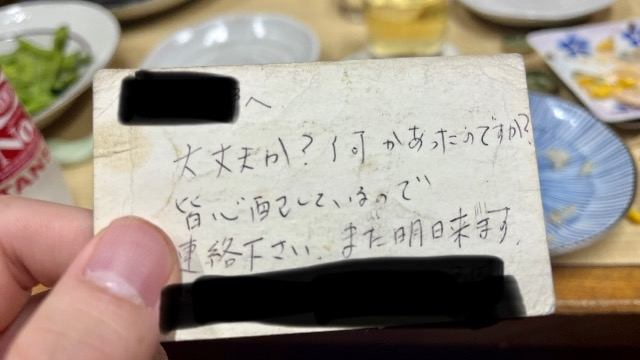 へ
大丈夫か?何かあったのですか?
皆心配しているので
連絡下さい。また明日来ます。